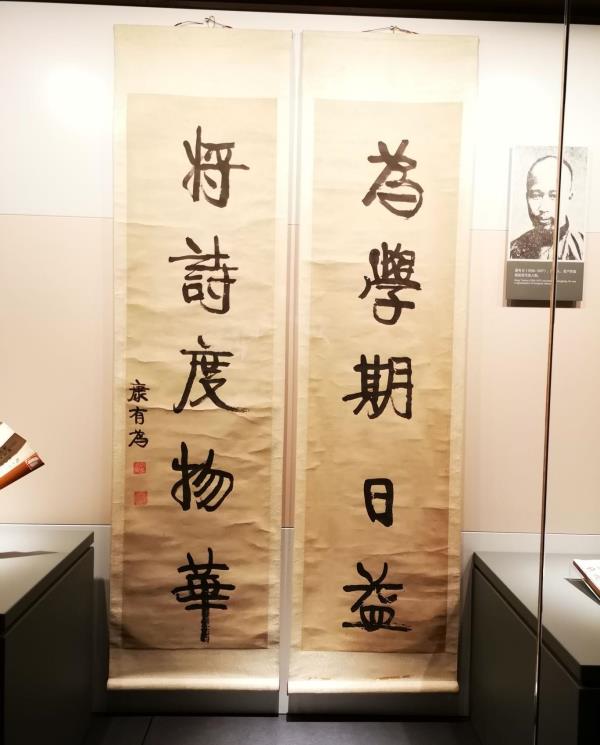 為學期日益
將詩度物華
康有為